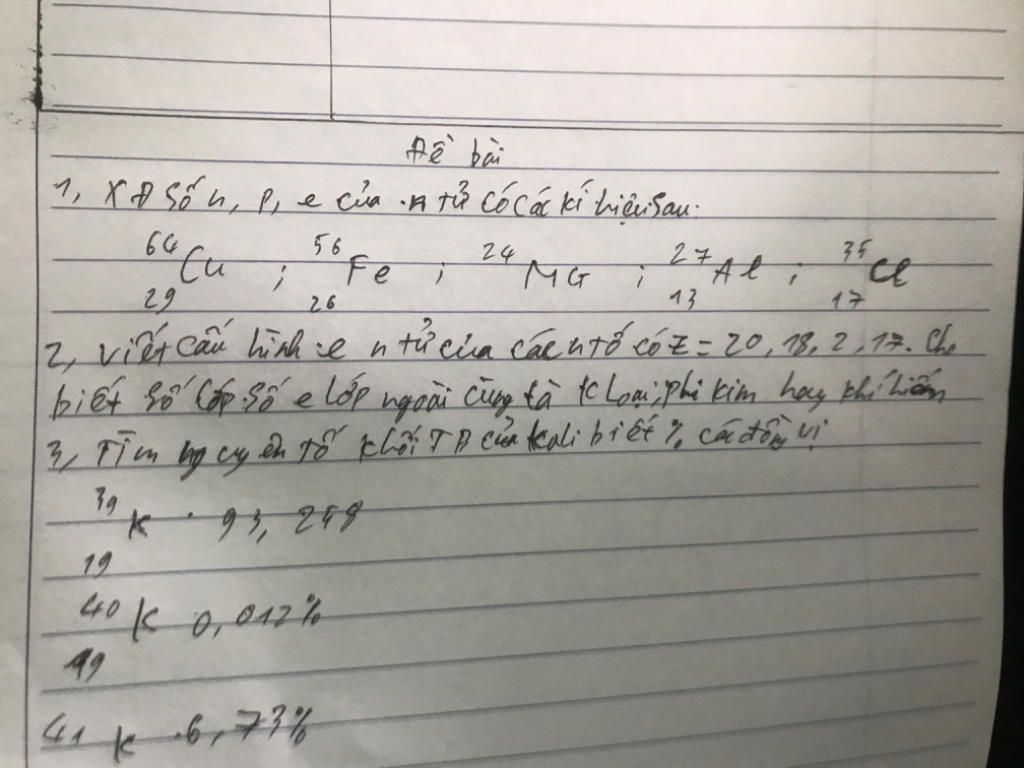 Đề bài
1, XĐ số n, p, e của n tử có các kí hiệu sau:
64 29 Cu ; 56 26 Fe ; 24 MG ; 27 13 Al ; 35 17 Cl
2, viết cấu hình e n tử của các n tố có Z = 20, 18, 2, 17. Cho
biết số lớp số e lớp ngoài cùng là k loại, phi kim hay khí hiếm
3, Tìm nguyên tố khối TB của kali biết % các đồng vị
39 19 K 93, 258
40 19 K 0, 012%
41 K 6, 73%